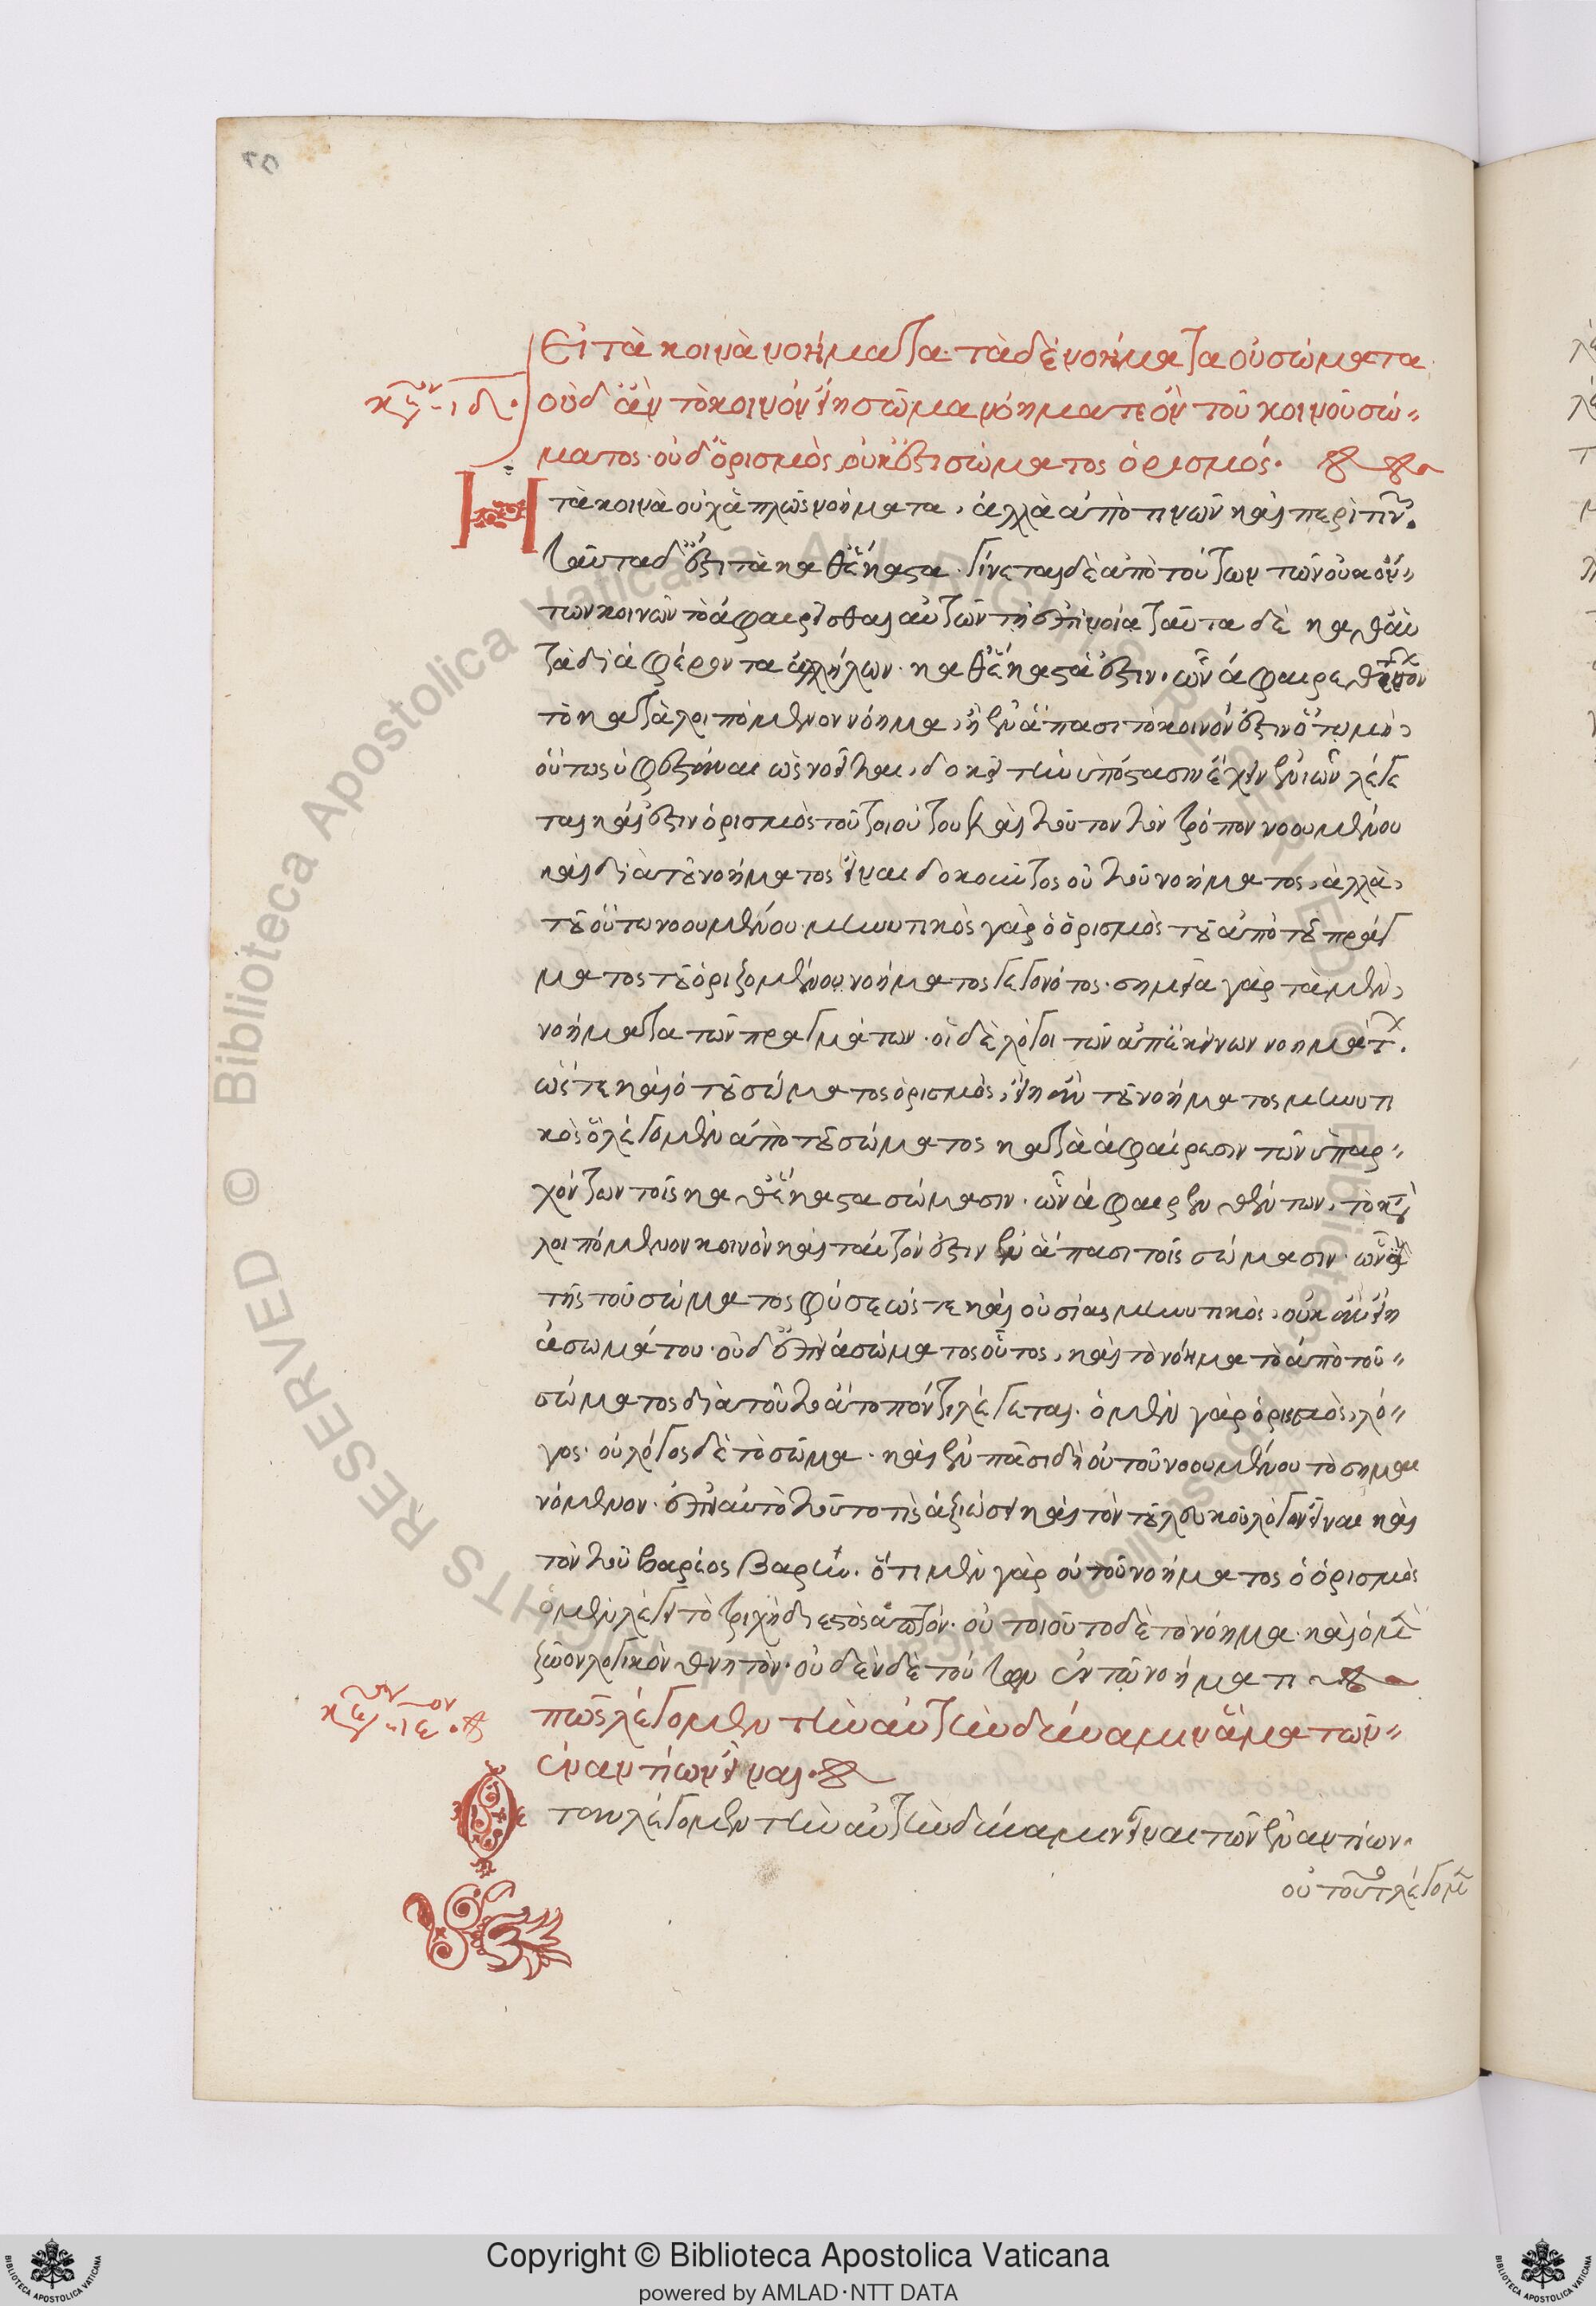 Εἰ τὰ κοινὰ νοήματα· τὰ δὲ νοήματα οὐ σώματα·
κεφ ιδ·
οὐδ' ἂν τὸ κοινὸν εἴη σῶμα νόημά τε ὂν τοῦ κοινοῦ σώ-
ματος· οὐδ' ὁρισμὸς οὐκ ἔστι σώματος ὁρισμός·
Η τὰ κοινὰ οὐχ ἁπλῶς νοήματα, ἀλλὰ ἀπό τινων καὶ περί τινων.
ταῦτα δ' ἔστι τὰ καθέκαστα· γίνεται δὲ ἀπὸ τούτων τῶν οὐκ ὄν-
των κοινῶν τὸ ἀφαιρεῖσθαι αὐτῶν τῇ ἐπινοία ταῦτα δὲ καθ' ἃ
τὰ διαφέροντα ἀλλήλων· καθέκαστά ἐστιν· ὧν ἀφαιρεθέντων
τὸ καταλοιπόμενον νόημα, ἢ ἐν ἅπασι τὸ κοινόν ἐστιν ὅτῳ μὴ,
οὕτως ὑφεστάναι ὡς νοεῖται, δοκεῖ τὴν ὑπόστασιν ἔχειν ἐν ὧν λέγε
ται καὶ ἔστιν ὁρισμὸς τοῦ τοιούτου καὶ τοῦτον τὸν τρόπον νοουμένου
καὶ διὰ τοῦ νοήματος εἶναι δοκοῦντος οὐ τοῦ νοήματος, ἀλλὰ,
τοῦ οὕτω νοουμένου· μηνυτικὸς γὰρ ὁ ὁρισμὸς τοῦ ἀπὸ τοῦ πράγ
ματος τοῦ ὁριζομένου νοήματος γεγονότος· σημεῖα γὰρ τὰ μὲν,
νοήματα τῶν πραγμάτων· οἱ δὲ λόγοι τῶν ἀπ' ἐκείνων νοημάτων.
ὥστε καὶ ὁ τοῦ σώματος ὁρισμὸς, εἴη ἂν τοῦ νοήματος μηνυτι
κὸς ὃ λέγομεν ἀπὸ τοῦ σώματος κατὰ ἀφαίρεσιν τῶν ὑπαρ-
χόντων τοῖς καθέκαστα σώμασιν· ὧν ἀφαιρεθέντων, τὸ κατα
λοιπόμενον κοινὸν καὶ ταὐτόν ἐστιν ἐν ἅπασι τοῖς σώμασιν·
τῆς τοῦ σώματος φύσεώς τε καὶ οὐσίας μηνυτικὸς, οὐκ ἂν εἴη
ἀσωμάτου· οὐδ' ἐπεὶ ἀσώματος οὗτος, καὶ τὸ νόημα τὸ ἀπὸ τοῦ-
σώματος διὰ τοῦτο ἄτοπόν τι λέγεται· ὁ μὲν γὰρ ὁρισμὸς, λό-
γος· οὐ λόγος δὲ τὸ σῶμα· καὶ ἐν πᾶσι δὴ οὐ τοῦ νοουμένου τὸ σημαι
νόμενον· ἐπεὶ αὐτὸ τοῦτό τις ἀξιώσει καὶ τὸν τοῦ λευκοῦ λόγον εἶναι καὶ
τὸν τοῦ βαρέος βαρύν· ὅτι μὲν γὰρ οὐ τοῦ νοήματος ὁ ὁρισμὸς
ὁ μὲν λέγει τὸ τριχῆ διαστατόν· οὐ τοιοῦτο δὲ τὸ νόημα· καὶ ὁ μὲν
ζῶον λογικὸν θνητὸν· οὐδὲν δὲ τούτων ἐν τῷ νοήματι
κεφ ιε·ον
πῶς λέγομεν τὴν αὐτὴν δύναμιν ἅμα τῶν-
ἐναντίων εἶναι·
Ὅταν λέγομεν τὴν αὐτὴν δύναμιν εἶναι τῶν ἐναντίων·
οὐ τοῦτο λέγομεν
Copyright © Biblioteca Apostolica Vaticana
powered by AMLAD·NTT DATA